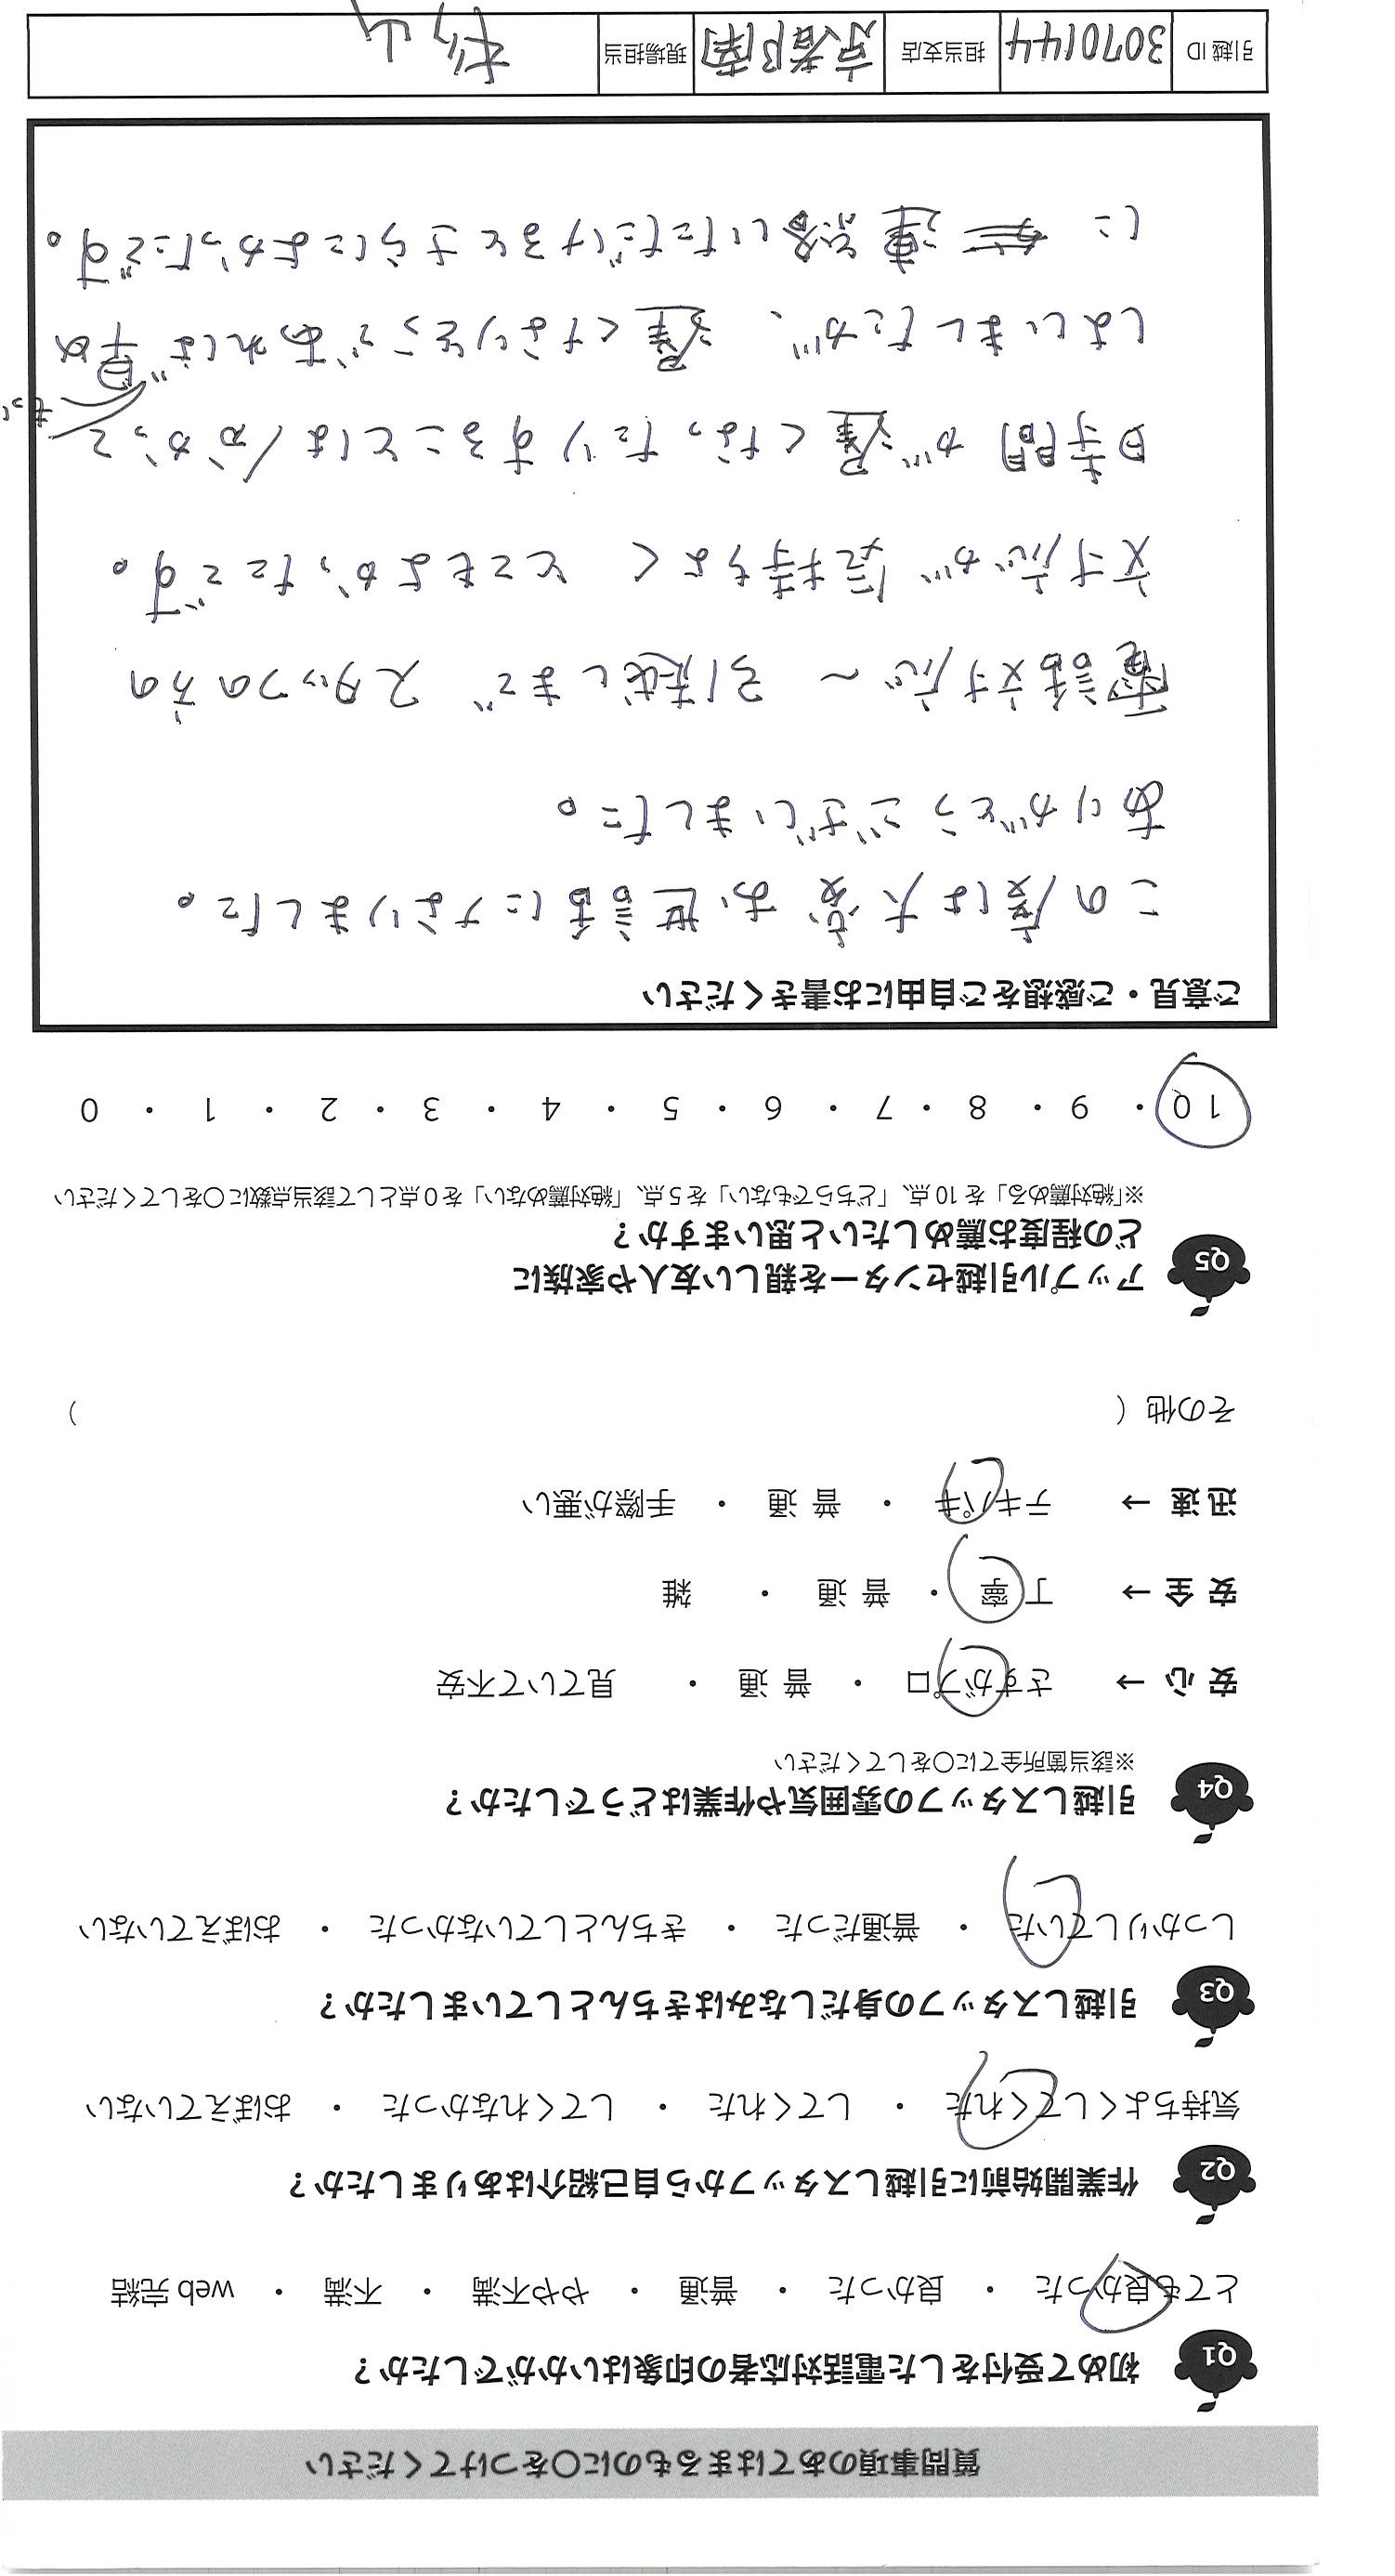 質問事項のあてはまるものに〇をつけてください
Q1 初めて受付をした電話対応者の印象はいかがでしたか?
とても良かった ・ 良かった ・ 普通 ・ やや不満 ・ 不満 ・ web 完結
Q2 作業開始前に引越しスタッフから自己紹介はありましたか?
気持ちよくしてくれた ・ してくれた ・ してくれなかった ・ おぼえていない
Q3 引越しスタッフの身だしなみはきちんとしていましたか?
しっかりしていた ・ 普通だった ・ きちんとしていなかった ・ おぼえていない
Q4 引越しスタッフの雰囲気や作業はどうでしたか?
※該当箇所全てに〇をしてください
安心 → さすがプロ ・ 普通 ・ 見ていて不安
安全 → 丁寧 ・ 普通 ・ 雑
迅速 → テキパキ ・ 普通 ・ 手際が悪い
その他 ( )
Q5 アップル引越センターを親しい友人や家族に
どの程度お薦めしたいと思いますか?
※「絶対薦める」を 10 点、「どちらでもない」を 5 点、「絶対薦めない」を 0 点として該当点数に〇をしてください
10 ・ 9 ・ 8 ・ 7 ・ 6 ・ 5 ・ 4 ・ 3 ・ 2 ・ 1 ・ 0
ご意見・ご感想をご自由にお書きください
この度は大変お世話になりました。
ありがとうございました。
電話対応〜引越しまで スタッフの方の
対応が気持ちよく とてもよかったです。
時間が遅くなったりすることは分かって
はいましたが、遅くなりそうであれば もっと早め
に 連絡いただけるとさらによかったです。
引越 ID 3070144 担当支店 京都南 現場担当 杉山